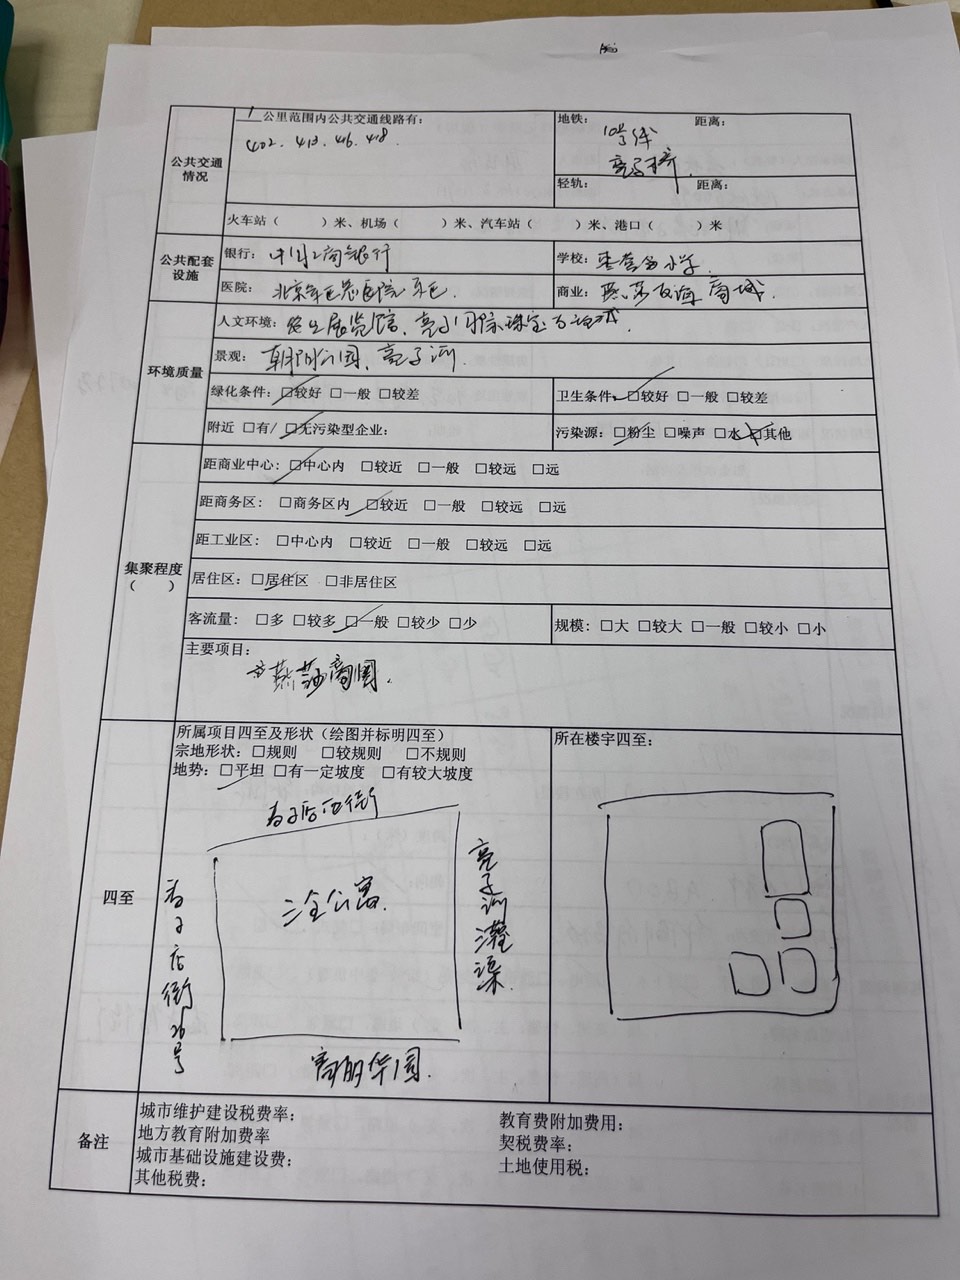 1 公里范围内公共交通线路有:
402、413、416、418.
地铁: 距离:
10号线
亮马桥
公共交通情况
轻轨: 距离:
火车站( )米、机场( )米、汽车站( )米、港口( )米
公共配套设施
银行: 中国工商银行
学校: 枣营小学.
医院: 北京 医院
商业: 燕莎友谊商城.
环境质量
人文环境: 展览馆、亮马国际珠宝
景观: 朝阳公园、亮马河.
绿化条件: ☑较好 □一般 □较差
卫生条件: ☑较好 □一般 □较差
附近 □有/ ☑无污染型企业:
污染源: □粉尘 □噪声 □水 □其他
集聚程度
( )
距商业中心: ☑中心内 □较近 □一般 □较远 □远
距商务区: □商务区内 ☑较近 □一般 □较远 □远
距工业区: □中心内 □较近 □一般 □较远 □远
居住区: ☑居住区 □非居住区
客流量: □多 □较多 ☑一般 □较少 □少
规模: □大 □较大 □一般 □较小 □小
主要项目:
燕莎商圈.
四至
所属项目四至及形状(绘图并标明四至)
宗地形状: □规则 □较规则 □不规则
地势: ☑平坦 □有一定坡度 □有较大坡度
所在楼宇四至:
枣子店西街
三全公寓.
枣子店街26号
亮马河灌渠.
高明华园.
备注
城市维护建设税费率:
教育费附加费用:
地方教育附加费率
契税费率:
城市基础设施建设费:
土地使用税:
其他税费: